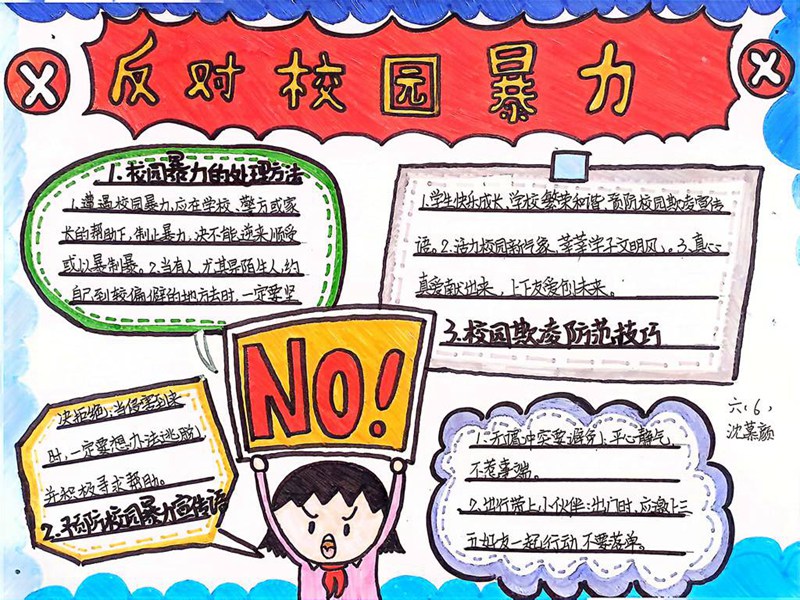 反对校园暴力
1.校园暴力的处理方法
1.遭遇校园暴力,应在学校、警方或家
长的帮助下,制止暴力,决不能逆来顺受
或以暴制暴。2.当有人,尤其是陌生人,约
自己到较偏僻的地方法时,一定要坚
决拒绝;当侵害到来
时,一定要想办法逃脱
并积极寻求帮助。
2.预防校园暴力宣传语
1.学生快乐成长,学校繁荣和谐,预防校园欺凌宣传
语。2.活力校园新气象、莘莘学子文明风。3.真心
真爱献出来,上下友爱创未来。
3.校园欺凌防范技巧
1.无谓冲突要避免,平心静气,
不惹事端。
2.出行带上小伙伴:出门时,应邀上三
五好友一起行动不要落单。
NO!
六(6)
沈慕颜